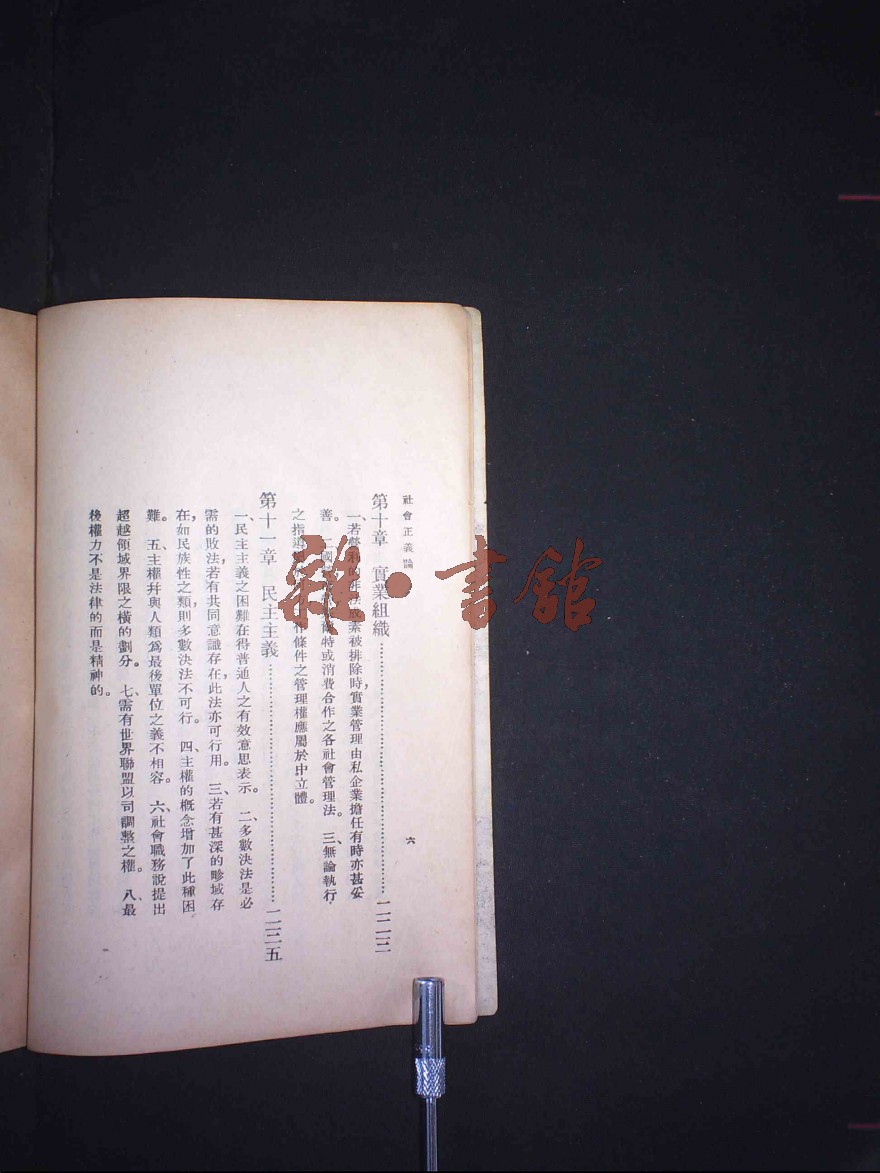 社會正義論
六
第十章 實業組織……二一三
一、若營利 被排除時，實業管理由私企業擔任有時亦甚妥
善。 二、國 特或消費合作之各社會管理法。 三、無論執行
之指 條件之管理權應屬於中立體。
第十一章 民主主義……二三五
一、民主主義之困難在得普通人之有效意思表示。 二、多數決法是必
需的敗法若有共同意識存在，此法亦可行用。 三、若有甚深的畛域存
在，如民族性之類，則多數決法不可行。 四、主權的概念增加了此種困
難。 五、主權幷與人類爲最後單位之義不相容。 六、社會職務說提出
超越領域界限之橫的劃分。 七、需有世界聯盟以司調整之權。 八、最
後權力不是法律的而是精神的。
雜·書館